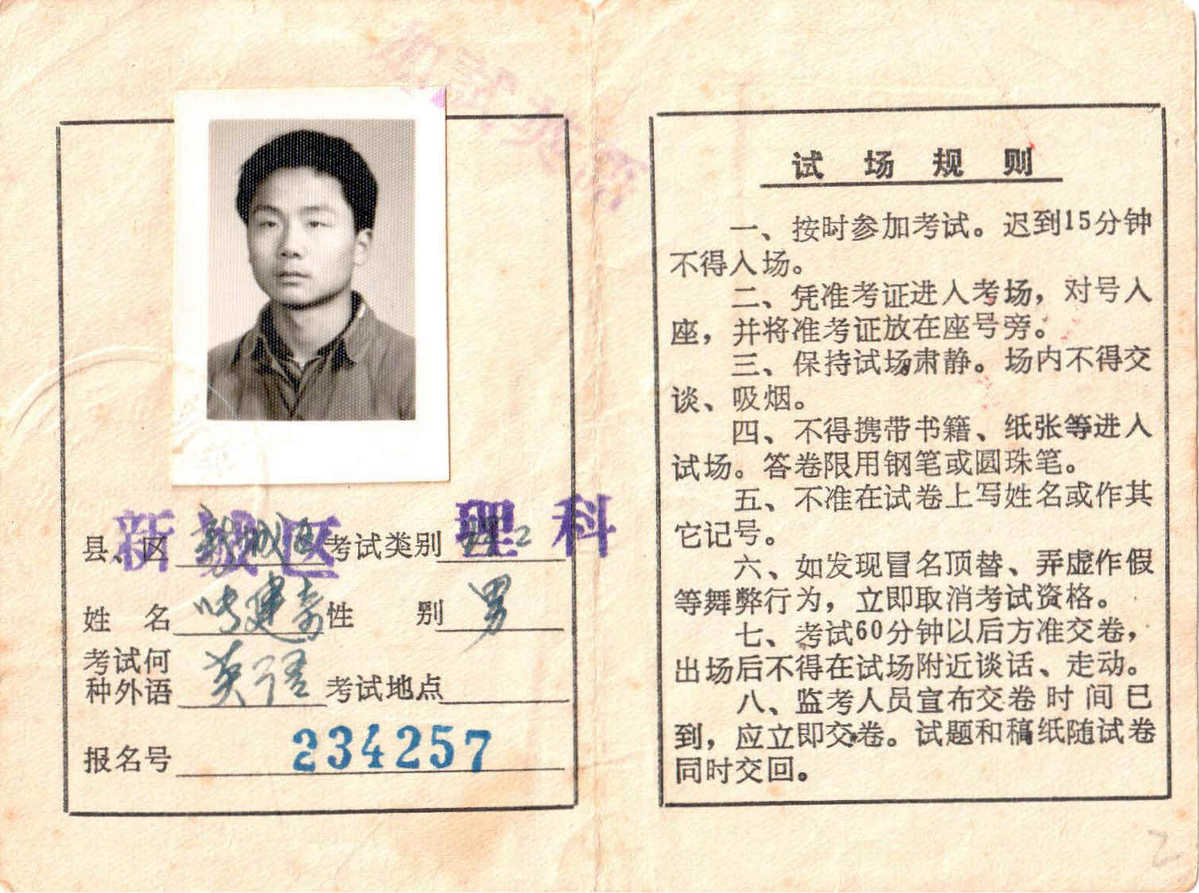 加试英语
县、区 新城区 考试类别 理工
新城区 理科
姓 名 建奇 性 别 男
考试何
种外语 英语 考试地点
报名号 234257
试场规则
一、按时参加考试。迟到15分钟
不得入场。
二、凭准考证进入考场，对号入
座，并将准考证放在座号旁。
三、保持试场肃静。场内不得交
谈、吸烟。
四、不得携带书籍、纸张等进入
试场。答卷限用钢笔或圆珠笔。
五、不准在试卷上写姓名或作其
它记号。
六、如发现冒名顶替、弄虚作假
等舞弊行为，立即取消考试资格。
七、考试60分钟以后方准交卷，
出场后不得在试场附近谈话、走动。
八、监考人员宣布交卷时间已
到，应立即交卷。试题和稿纸随试卷
同时交回。
2